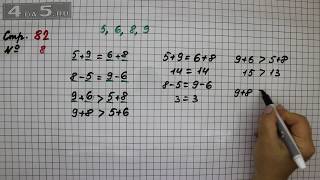 4АБУ.RU
Стр. 82
№ 8
5, 6, 8, 9
5+9 = 6+8
8-5 = 9-6
9+6 > 5+8
9+8 > 5+6
5+9 = 6+8
14 = 14
8-5 = 9-6
3 = 3
9+6 > 5+8
15 > 13
9+8